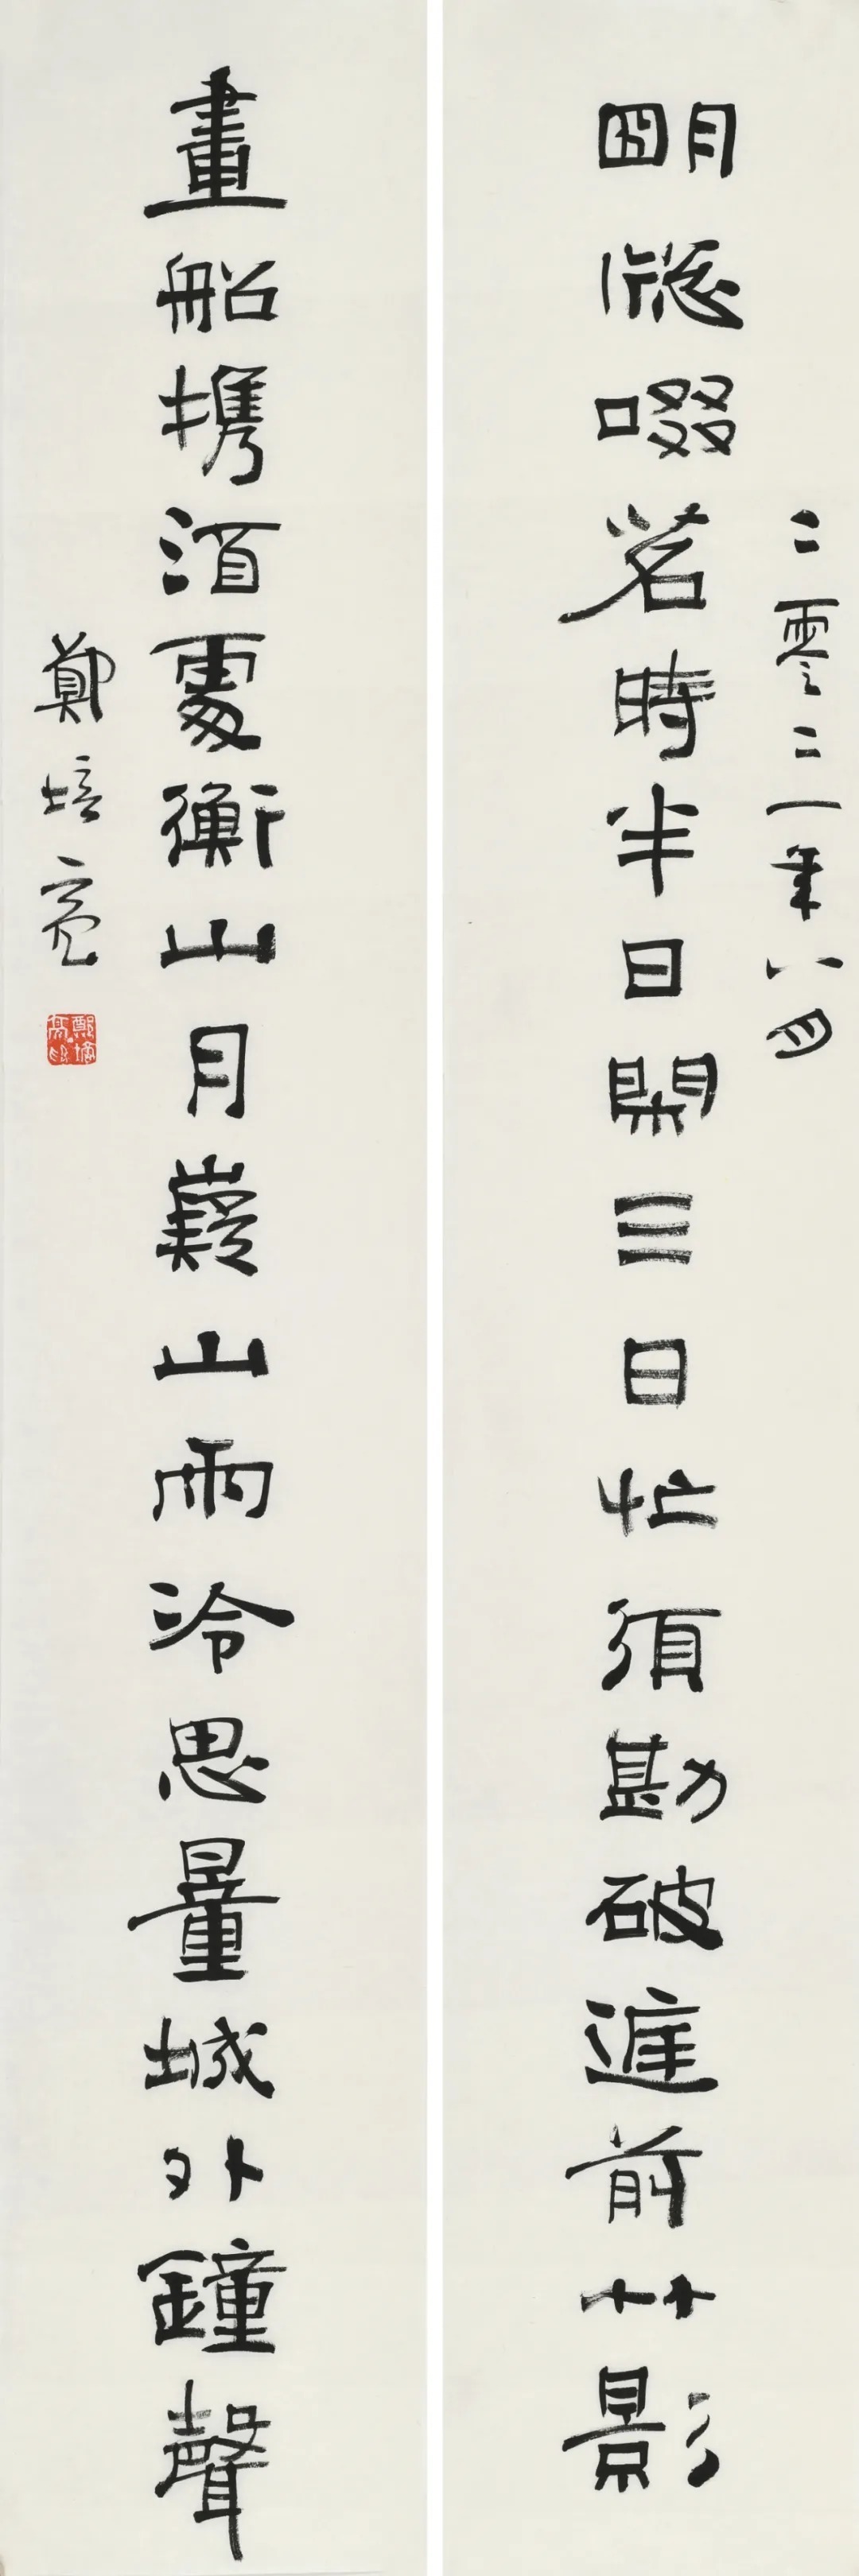 朙牕啜茗時半日閑三日忙須勘破庭前艸影
二零二一年八月
畫船携酒處衡山月嶷山雨冷思量城外鐘聲
鄭培亮